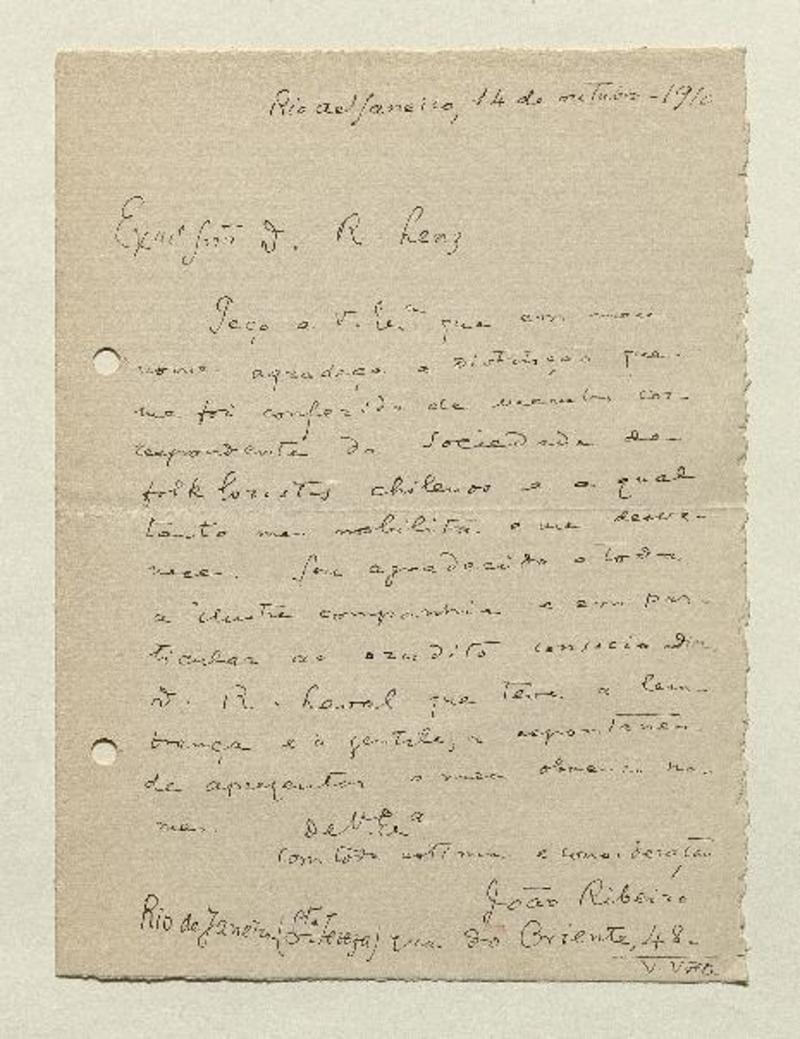 Rio de Janeiro, 14 de outubro - 1910
D. R. Lenz
Peço a V. Ex.cia que em meu
nome agradeça a distincção que
me foi conferida de membro cor-
respondente da Sociedade de
folkloristas chilenos e a qual
tanto me nobilita e me desva-
nece. Sou agradecido a toda
a illustre companhia e em par-
ticular ao erudito consocio
D. R. Laval que teve a lem-
brança e a gentileza espontanea
de apresentar o meu obscuro no-
me.
De V. Ex.a
com toda estima e consideração
João Ribeiro
Rio de Janeiro (Sta Thereza) rua do Oriente, 48.